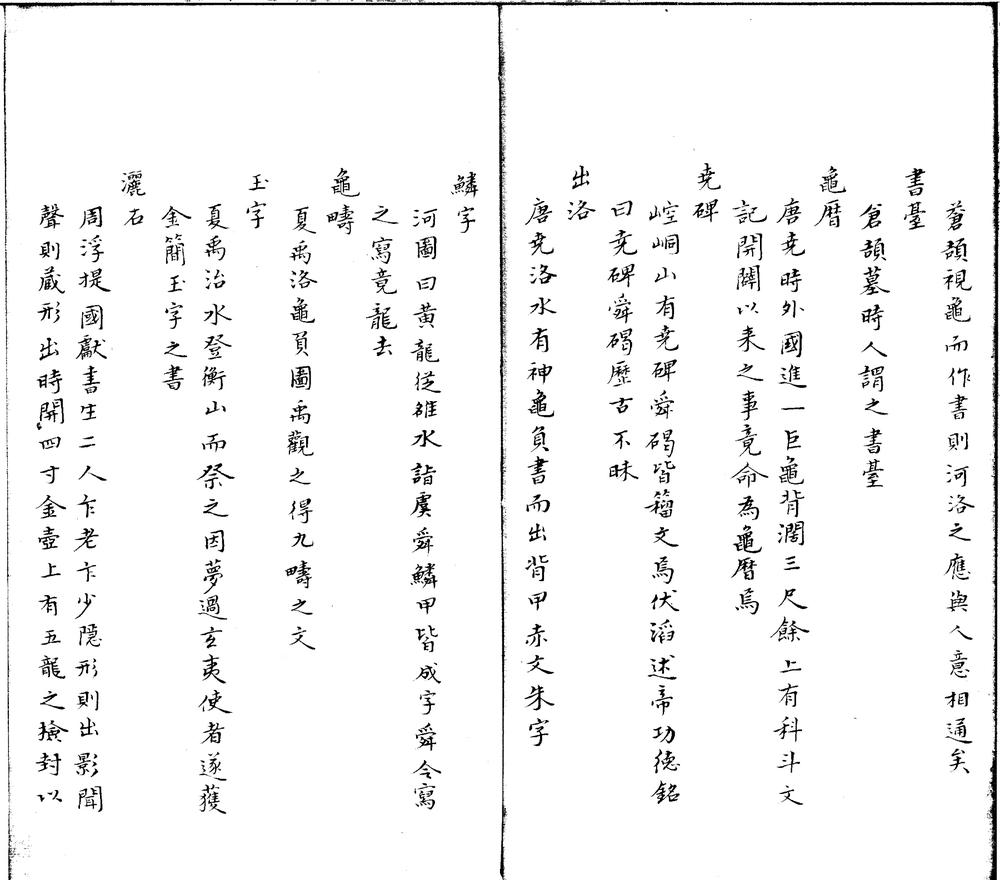 蒼頡視龜而作書則河洛之應與人意相通矣
書臺
倉頡墓時人謂之書臺
龜曆
唐尭時外國進一巨龜背濶三尺餘上有科斗文
記開闢以来之事竟命為龜曆焉
尭碑
崆峒山有尭碑舜碣皆籀文焉伏滔述帝功徳銘
曰尭碑舜碣歷古不昧
出洛
唐尭洛水有神龜負書而出背甲赤文朱字
鱗字
河圖曰黄龍従雒水詣虞舜鱗甲皆成字舜令寫
之寫竟龍去
龜疇
夏禹洛龜負圖禹觀之得九疇之文
玉字
夏禹治水登衡山而祭之因夢過玄夷使者遂獲
金簡玉字之書
灑石
周浮提國獻書生二人乍老乍少隱形則出影聞
聲則蔵形出時開四寸金壺上有五龍之撿封以